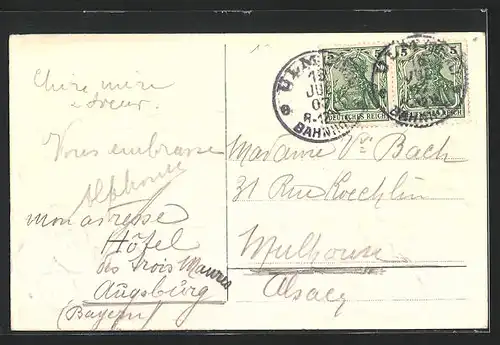 Chère mère
& soeur.
Vous embrasse
Alphonse
mon adresse
Hôtel
des trois Maures
Augsburg
(Bayern)
ULM
JUL
07
8-12
BAHNHOF
5 5
DEUTSCHES REICH DEUTSCHES REICH
Madame Vve Bach
31 Rue Koechlin
Mulhouse
Alsace